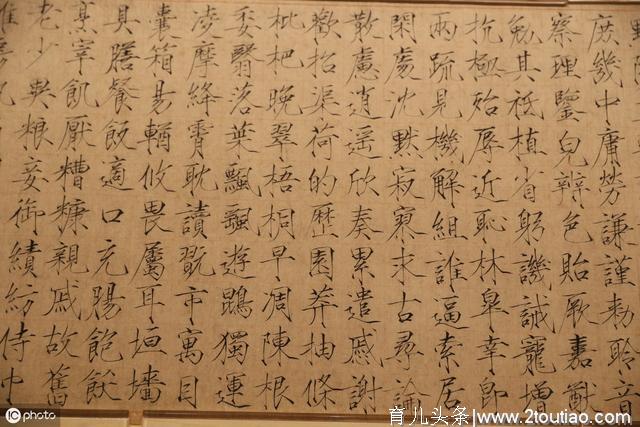 庶幾中庸勞謙謹勅聆音
察理鑒皃辨色貽厥嘉猷
勉其祗植省躬譏誡寵增
抗極殆辱近恥林皋幸即
兩疏見機解組誰逼索居
閑處沈默寂寥求古尋論
散慮逍遥欣奏累遣慼謝
歡招渠荷的歷園莽抽條
枇杷晚翠梧桐早凋陳根
委翳落葉飄飖遊鵾獨運
凌摩絳霄耽讀翫市寓目
囊箱易輶攸畏屬耳垣墻
具膳餐飯適口充腸飽飫
烹宰飢厭糟糠親戚故舊
老少異粮妾御績紡侍巾
iC photo
育儿头条 www.2toutiao.com